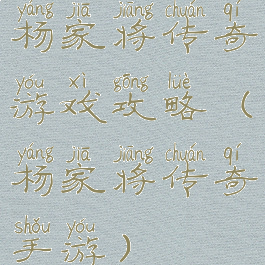 yáng jiā jiāng chuán qí
杨家将传奇
yóu xì gōng lüè
游戏攻略（
yáng jiā jiāng chuán qí
杨家将传奇
shǒu yóu
手游）